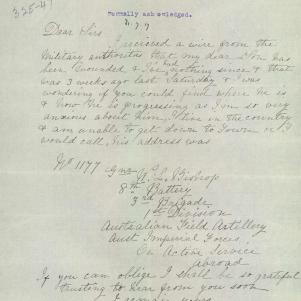 325-41
Formally acknowledged.
4.7.7
Dear Sirs
I received a wire from the
Military authorities that my dear Son has
been Wounded & I've had nothing since & that
was 3 weeks ago last Saturday & I was
wondering if you could find where He is
& How He is progressing as I am so very
anxious about him. I live in the country
& am unable to get down to Town or I
would call. His address was
No 1177 Gnr W. L. Bishop
8th Battery
3rd Brigade
1st Division
Australian Field Artillery
Aust Imperial Forces
On Active Service
abroad
If you can oblige I shall be so grateful
trusting to hear from you soon
I remain yours